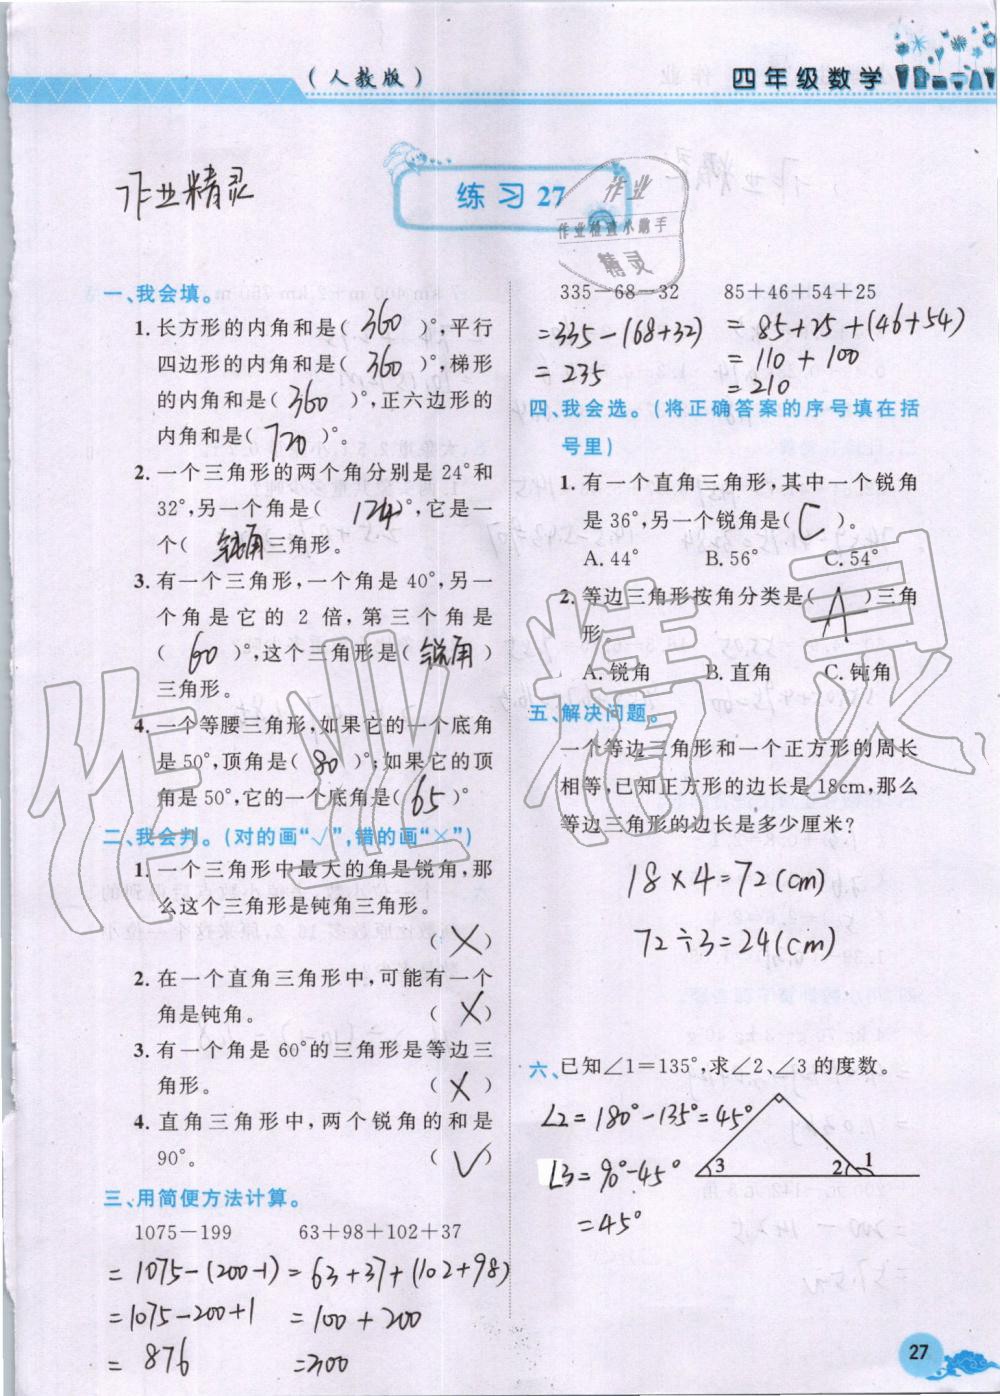 (人教版)
四年级数学
作业精灵
练习 27
作业
作业检查小助手
精灵
一、我会填。
1. 长方形的内角和是( 360 )°,平行
四边形的内角和是( 360 )°,梯形
的内角和是( 360 )°,正六边形的
内角和是( 720 )°。
2. 一个三角形的两个角分别是 24°和
32°,另一个角是( 124 )°,它是一
个( 钝角 三角形。
3. 有一个三角形,一个角是 40°,另一
个角是它的 2 倍,第三个角是
( 60 )°,这个三角形是( 锐角 )
三角形。
4. 一个等腰三角形,如果它的一个底角
是 50°,顶角是( 80 )°;如果它的顶
角是 50°,它的一个底角是( 65 )°
二、我会判。(对的画“√”,错的画“×”)
1. 一个三角形中最大的角是锐角,那
么这个三角形是钝角三角形。
( × )
2. 在一个直角三角形中,可能有一个
角是钝角。 ( × )
3. 有一个角是 60°的三角形是等边三
角形。 ( × )
4. 直角三角形中,两个锐角的和是
90°。 ( √ )
三、用简便方法计算。
1075-199 63+98+102+37
=1075-(200-1) =63+37+(102+98)
=1075-200+1 =100+200
=876 =300
335-68-32 85+46+54+25
=335-(68+32) =85+25+(46+54)
=235 =110+100
=210
四、我会选。(将正确答案的序号填在括
号里)
1. 有一个直角三角形,其中一个锐角
是 36°,另一个锐角是( C )。
A. 44° B. 56° C. 54°
2. 等边三角形按角分类是( A )三角
形。
A. 锐角 B. 直角 C. 钝角
五、解决问题。
一个等边三角形和一个正方形的周长
相等,已知正方形的边长是 18cm,那么
等边三角形的边长是多少厘米?
18×4=72(cm)
72÷3=24(cm)
六、已知∠1=135°,求∠2、∠3 的度数。
∠2=180°-135°=45°
∠3=90°-45°
=45°
3 2 1
作业精灵
27